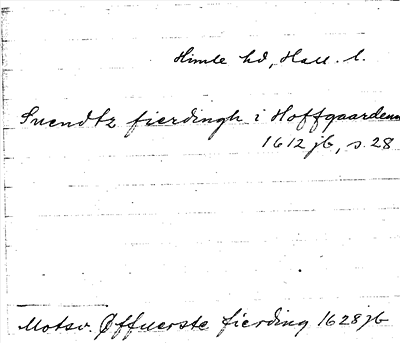 Himle hd, Hall. l.
Suendtz fierdingh i Hoffgaarden
1612 jb, s. 28
Motsv. Øffuerste fierding 1628 jb